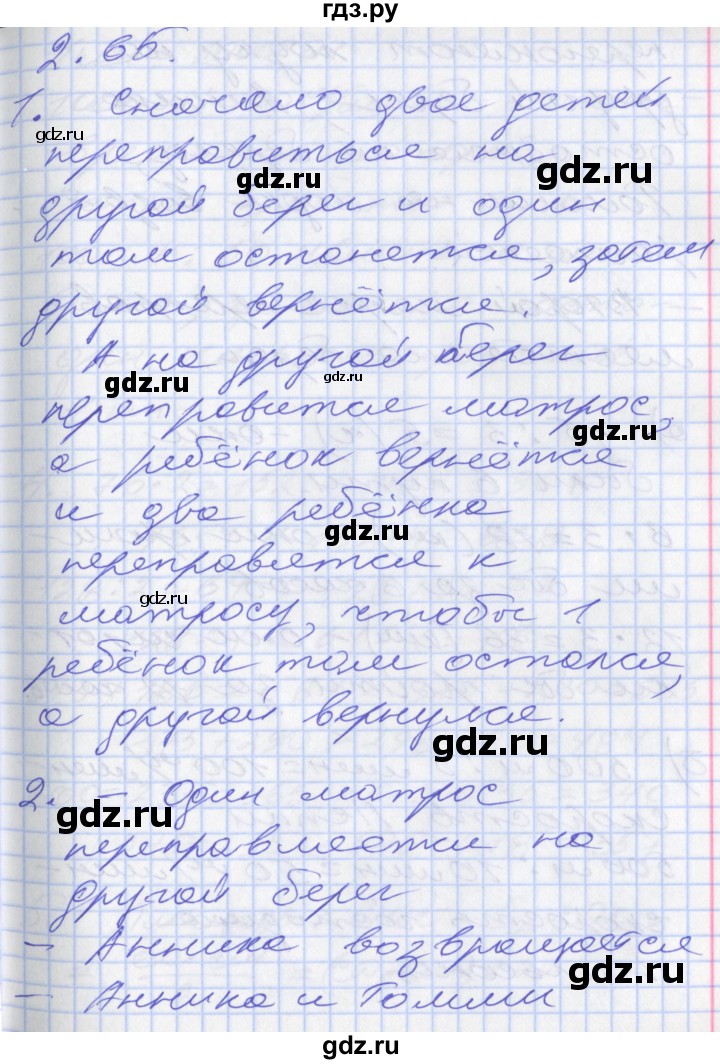 гдз.ру
2.65.
1. Сначало двое детей
gdz.ru
переправиться на
gdz.ru
gdz.ru
другой берег и один
там останется, затем
другой вернётся.
А на другой берег
gdz.ru
gdz.ru
переправится матрос,
gdz.ru
а ребёнок вернётся
и два ребёнка
gdz.ru
переправятся к
gdz.ru
матросу, чтобы 1
ребёнок там остался,
а другой вернулся.
gdz.ru
2. – Один матрос
gdz.ru
переправляется на
другой берег
– Анника возвращается
gdz.ru
– Анника и Томми
гдз.ру